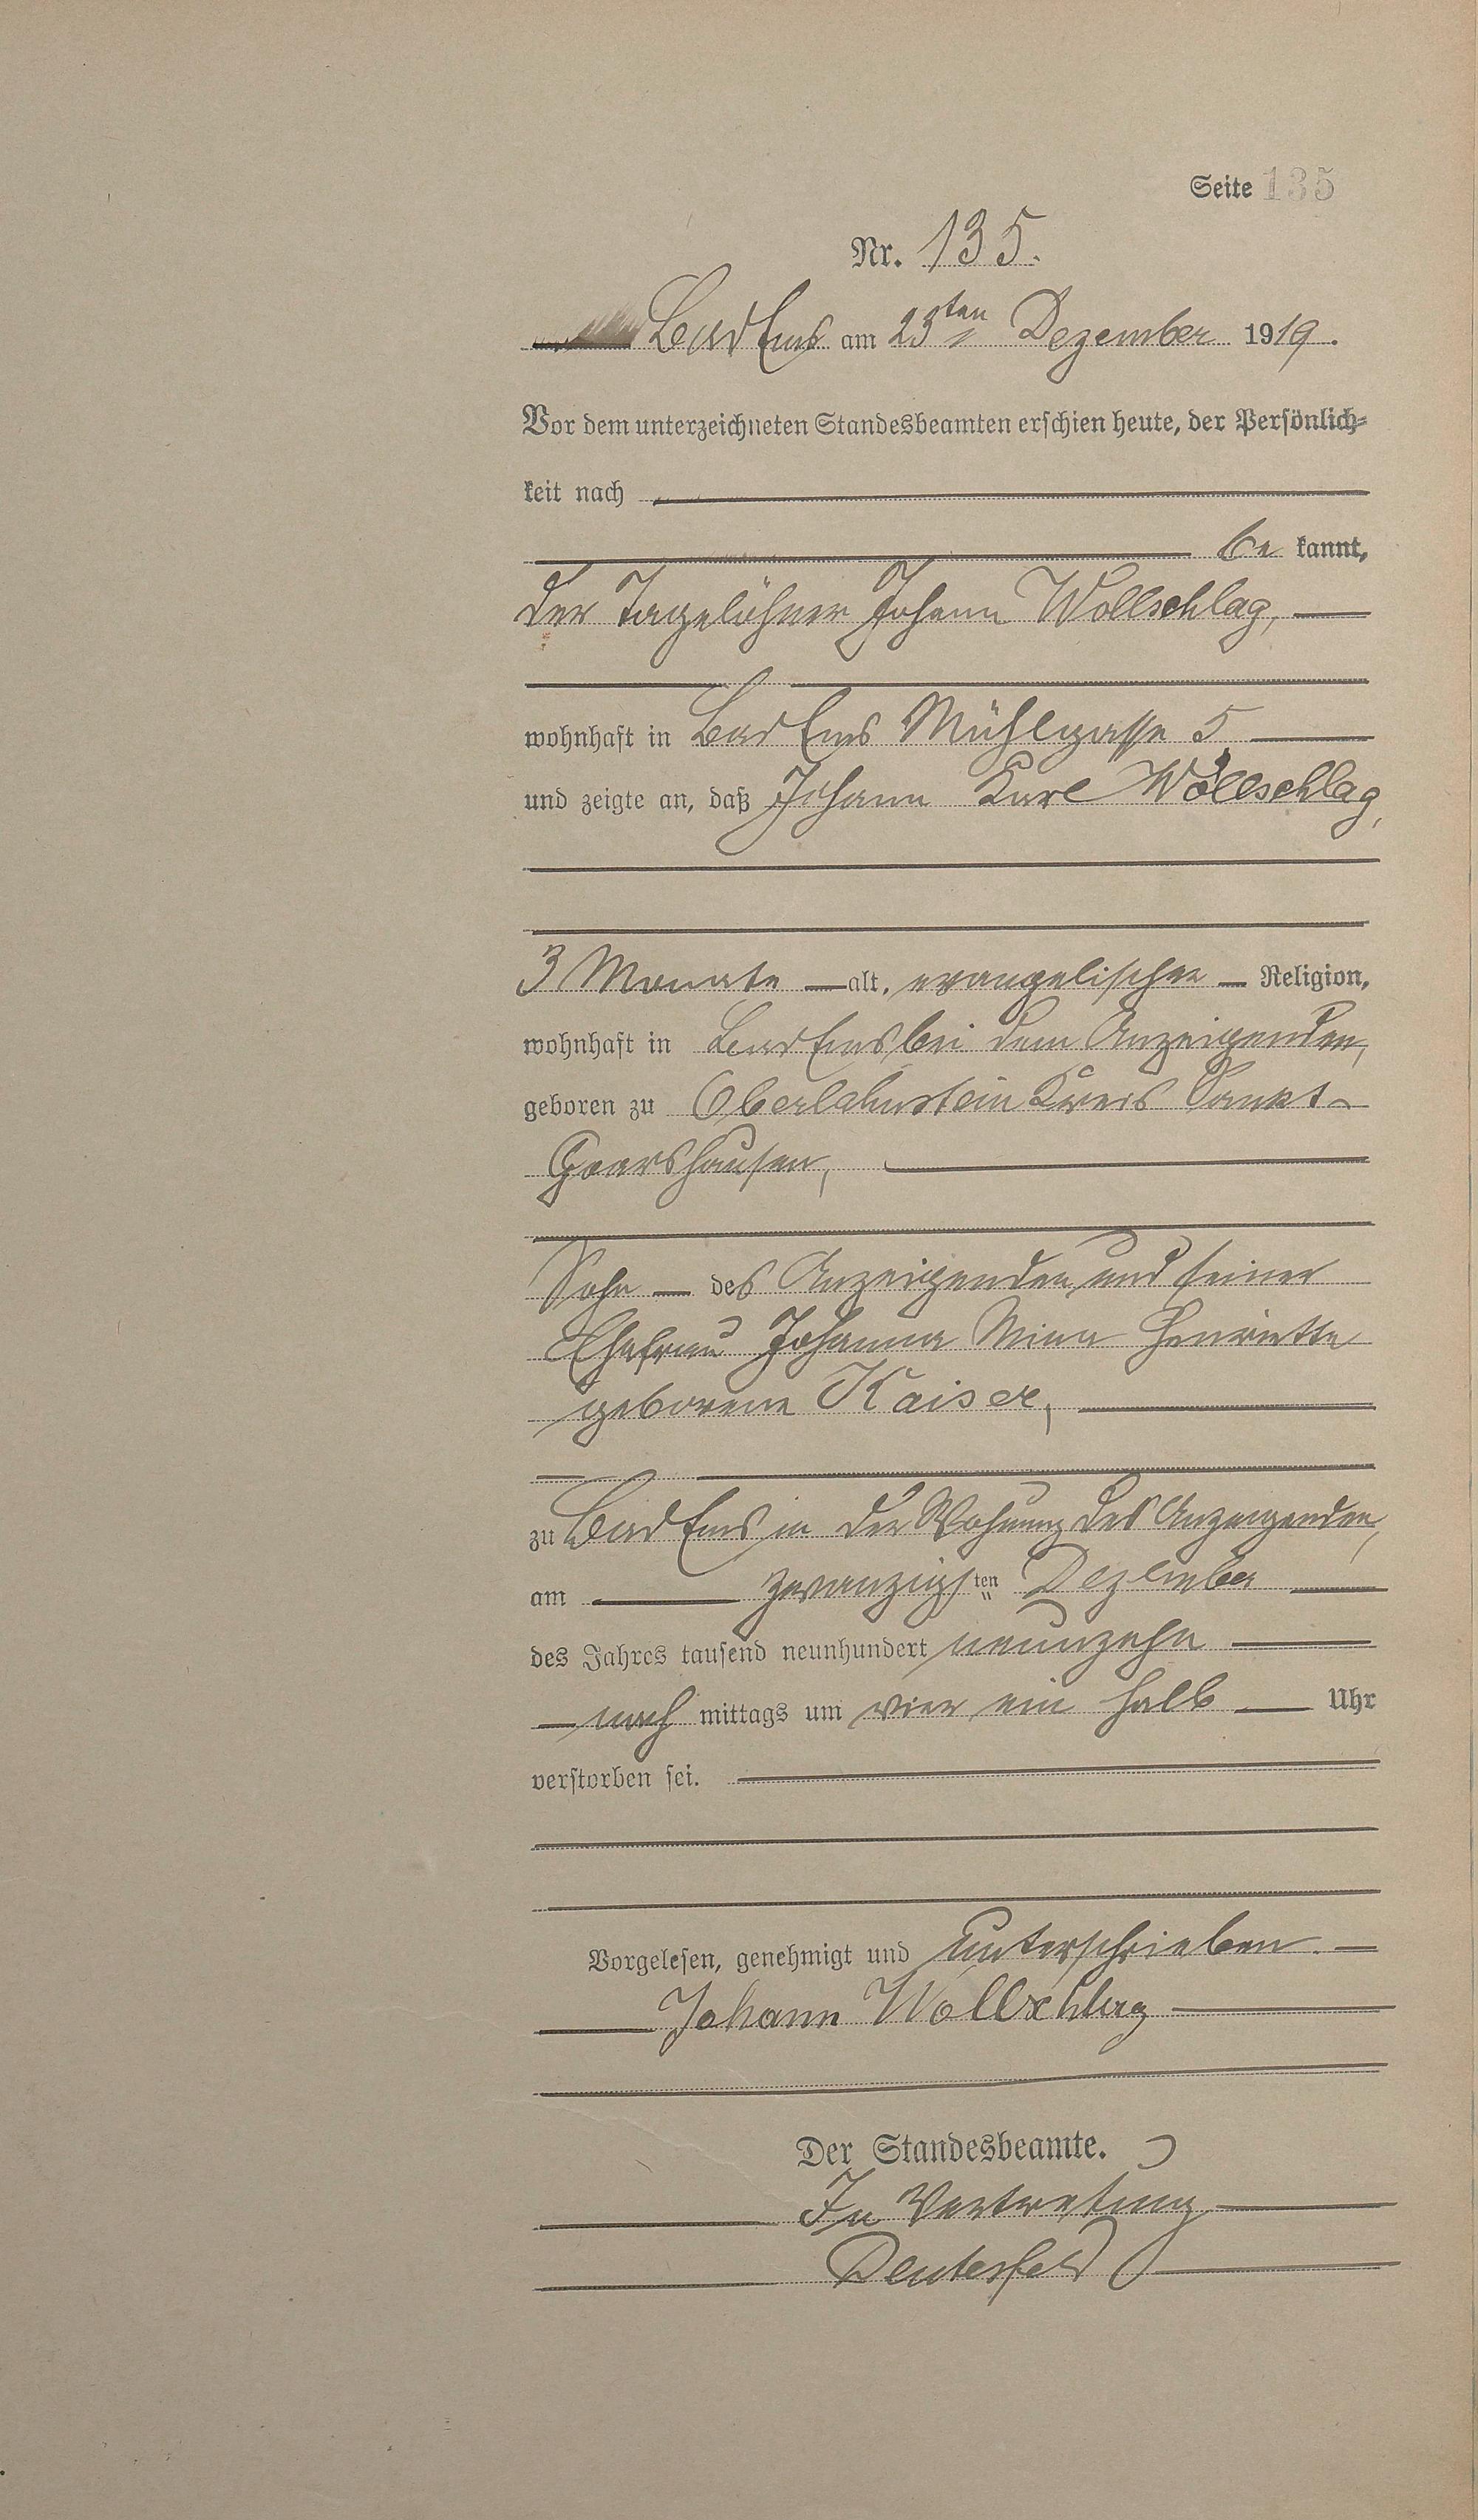 Seite 135
Nr. 135.
Bad Ems am 23ten Dezember 1919.
Vor dem unterzeichneten Standesbeamten erschien heute, der Persönlich-
keit nach
be kannt,
der Tagelöhner Johann Wollschlag,
wohnhaft in Bad Ems Mühlgasse 5
und zeigte an, daß Johann Karl Wollschlag,
3 Monate alt, evangelischer Religion,
wohnhaft in Bad Ems bei dem Anzeigenden,
geboren zu Oberlahnstein Kreis Sankt
Goarshausen,
Sohn des Anzeigenden und seiner
Ehefrau Johanna Mina Henriette
geborene Kaiser,
zu Bad Ems in der Wohnung des Anzeigenden,
am zwanzigsten Dezember
des Jahres tausend neunhundert neunzehn
nach mittags um vier ein halb Uhr
verstorben sei.
Vorgelesen, genehmigt und unterschrieben.
Johann Wollschlag
Der Standesbeamte.
In Vertretung